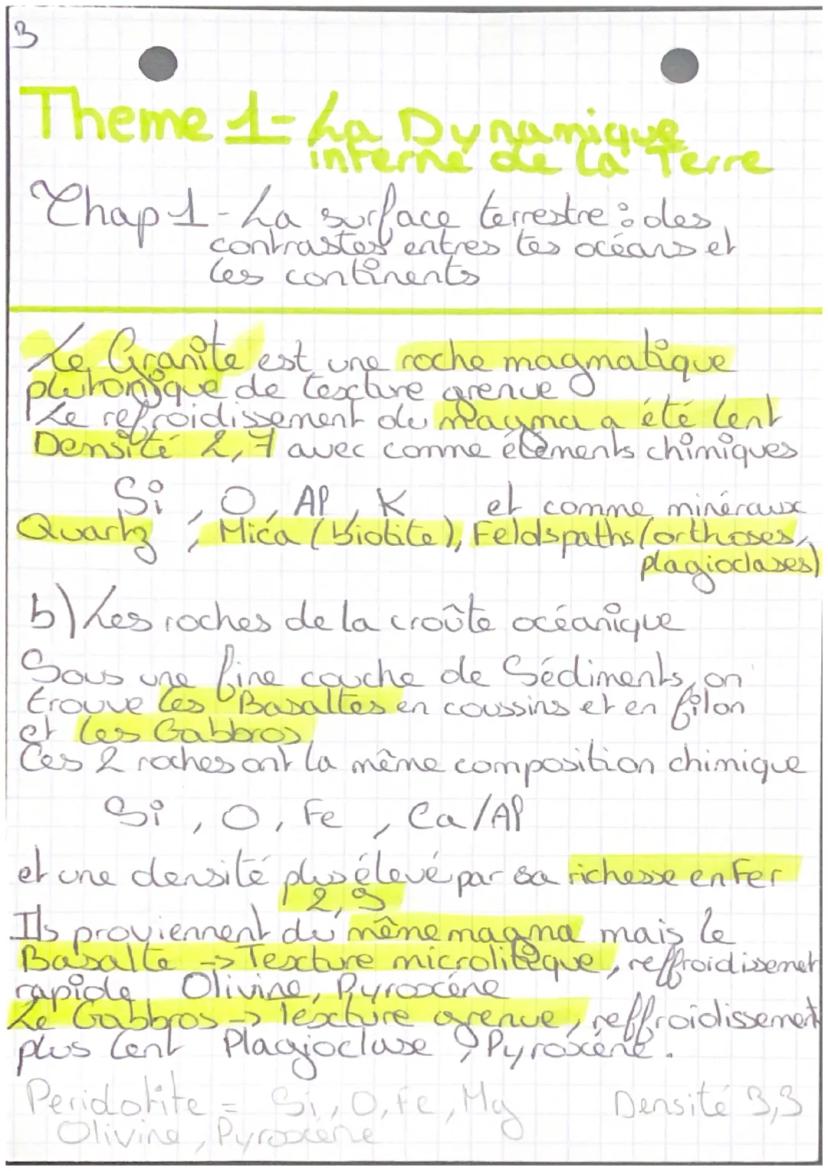 3
Theme 1- La Dynamique
interne de la Terre
Chap 1 - La surface terrestre : des
contrastes entres les océans et
les continents
Le Granite est une roche magmatique
plutonique de texture grenue
Le refroidissement du magma a été lent
Densité 2,7 avec comme éléments chimiques
Si , O, Al , K et comme minéraux
Quartz , Mica (biotite), Feldspaths (orthoses,
plagioclases)
b) Les roches de la croûte océanique
Sous une fine couche de Sédiments, on
trouve les Basaltes en coussins et en filon
et les Gabbros
Ces 2 roches ont la même composition chimique
Si , O, Fe , Ca/Al
et une densité plus élevé par sa richesse en Fer
2,9
Ils proviennent du même magma mais le
Basalte -> Texture microliteque, reffroidissemet
rapide Olivine, Pyroxéne
Le Gabbros -> Texture grenue, reffroidissement
plus lent Plagioclase , Pyroxéne.
Peridotite = Si, O, Fe, Mg Densité 3,3
Olivine, Pyroxéne